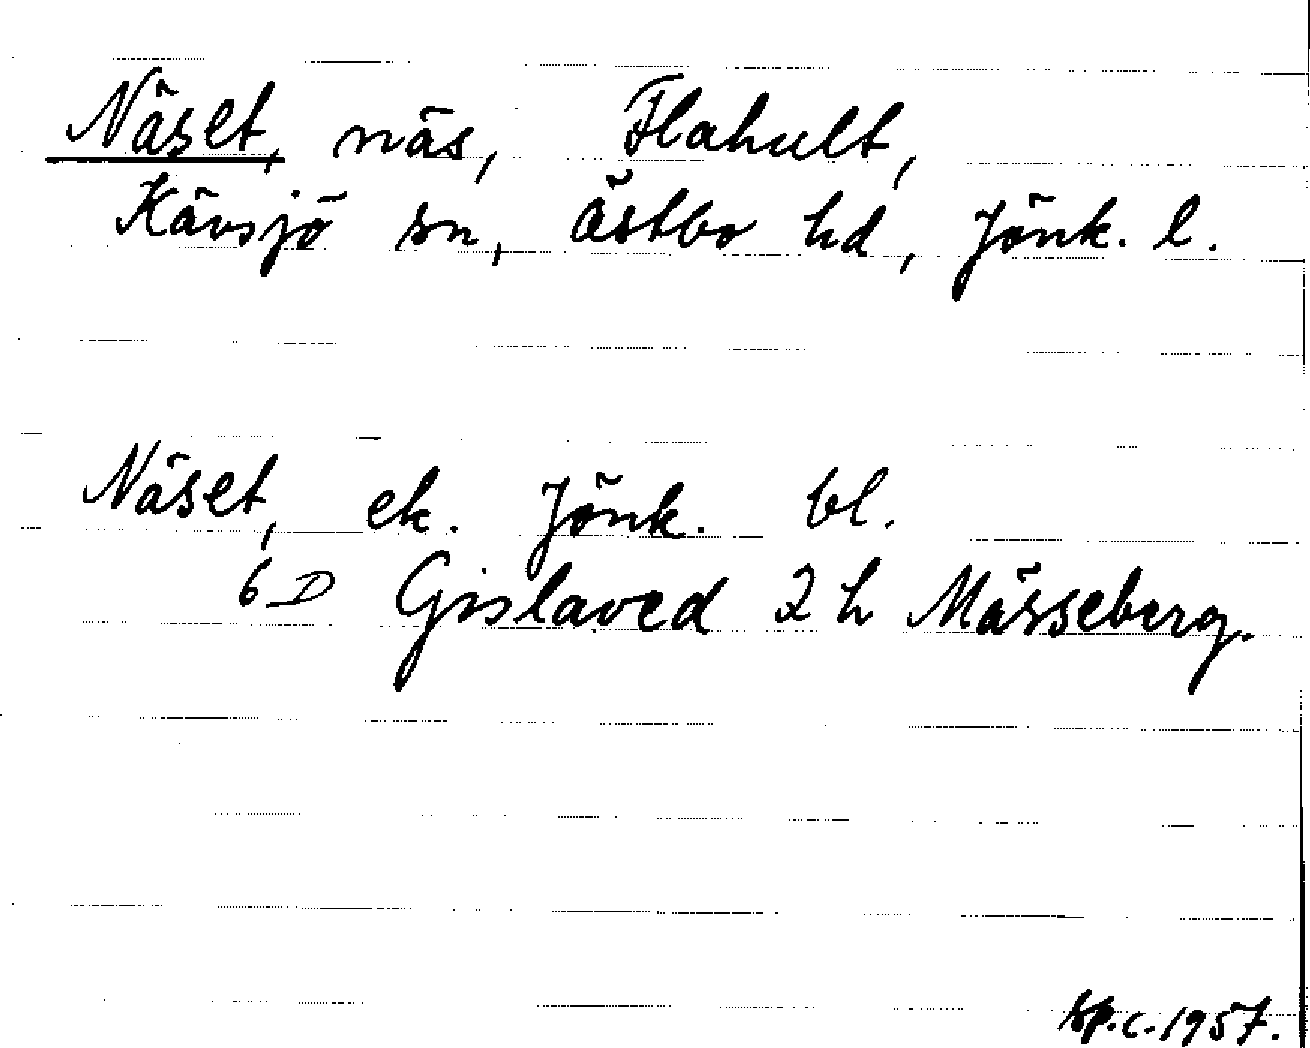 Näset, näs, Flahult,
Kävsjö sn, Östbo hd, Jönk. l.
Näset, ek. Jönk. bl.
6 D Gislaved 2 h Mässeberg.
c. 1957.